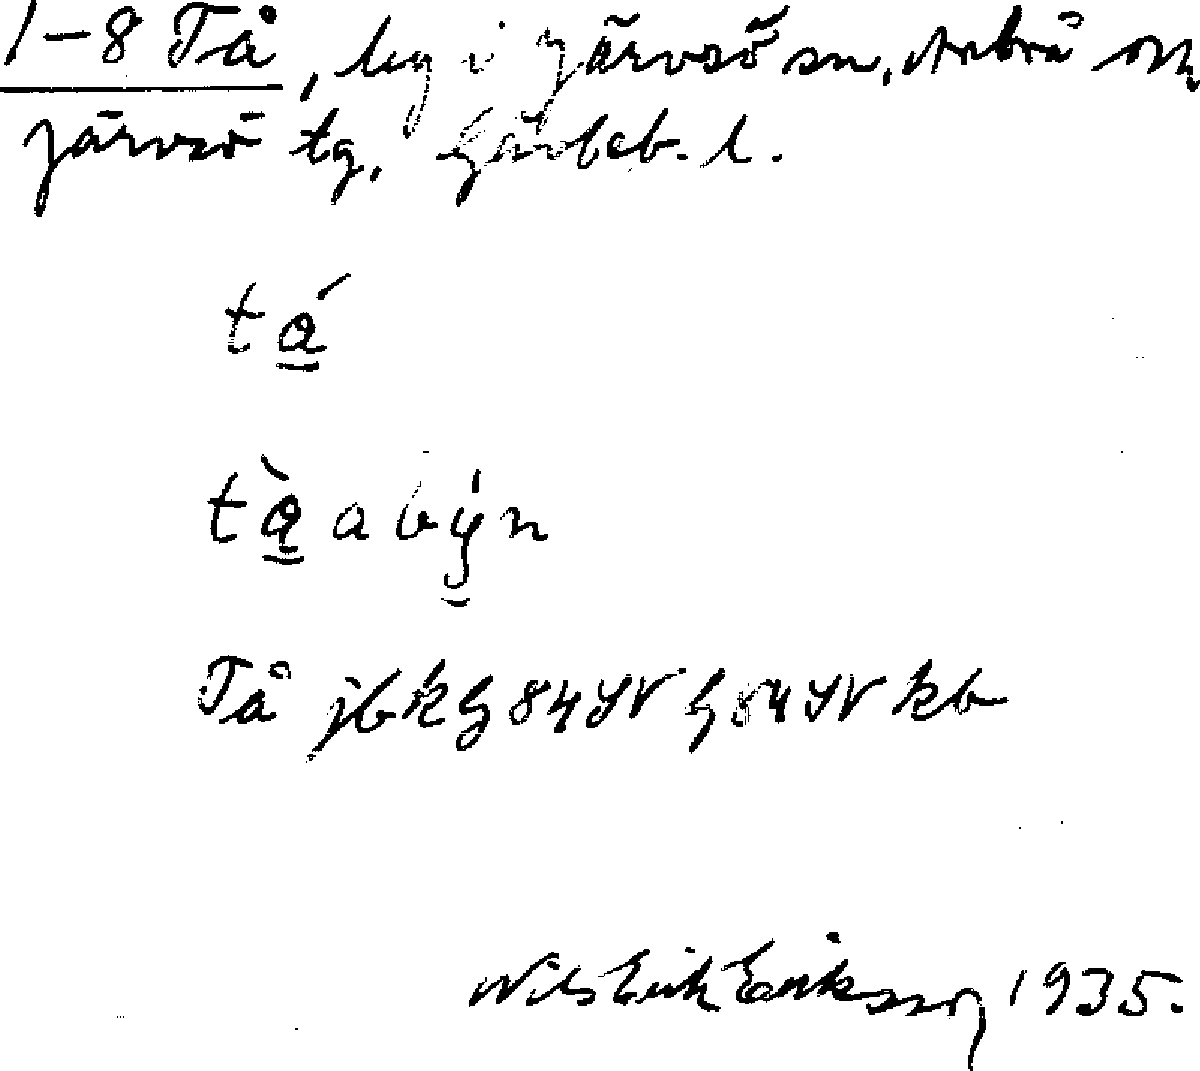 1-8 Tå, by i Järvsö sn, Arbrå och
Järvsö tg, Gävleb. l.
tá̲
tà̲ a bý̲n
Tå jbkg 84 SV g 84 SV kb
Nils Erik Eriksson 1935.